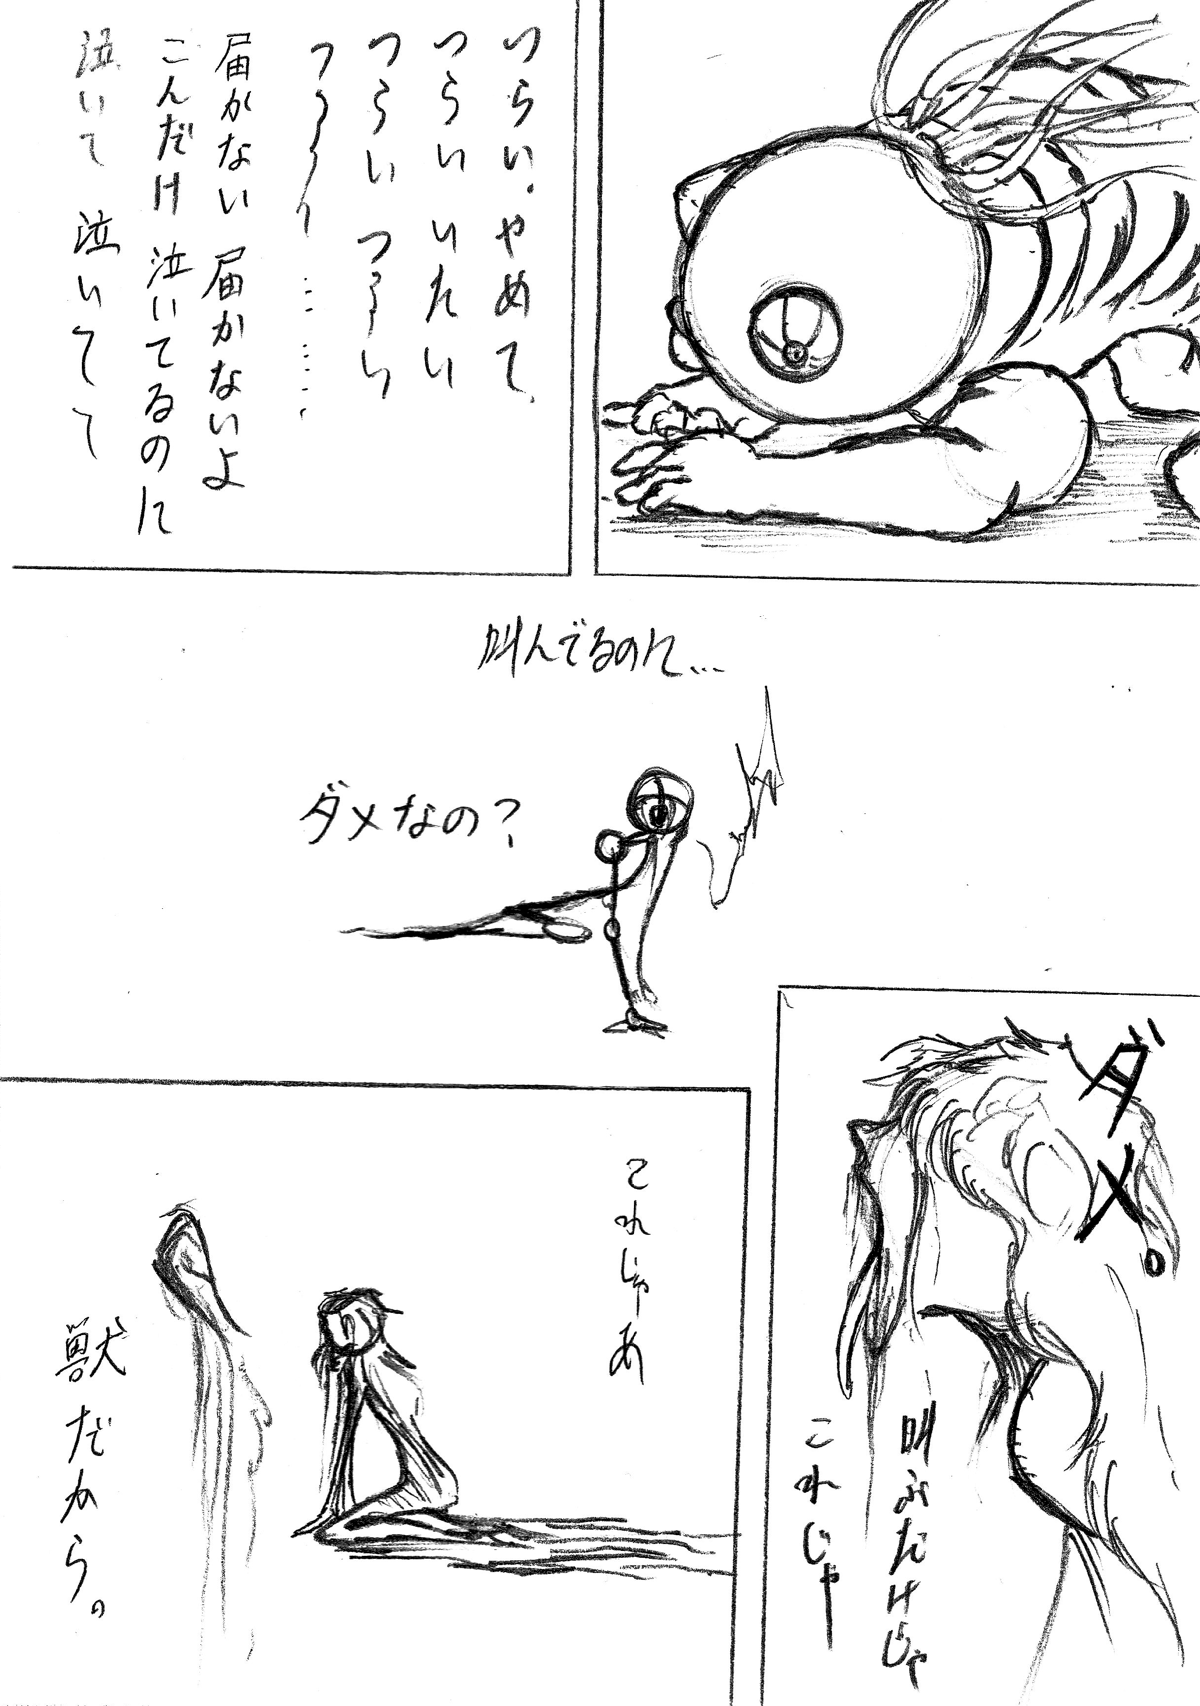 つらい、やめて、
つらい いたい
つらい つうい
つううう………
届かない 届かないよ
こんだけ 泣いてるのに
泣いて 泣いてて
叫んでるのに…
ダメなの？
ダメ
叫ぶだけじゃ
これじゃー
これじゃあ
獣だから。